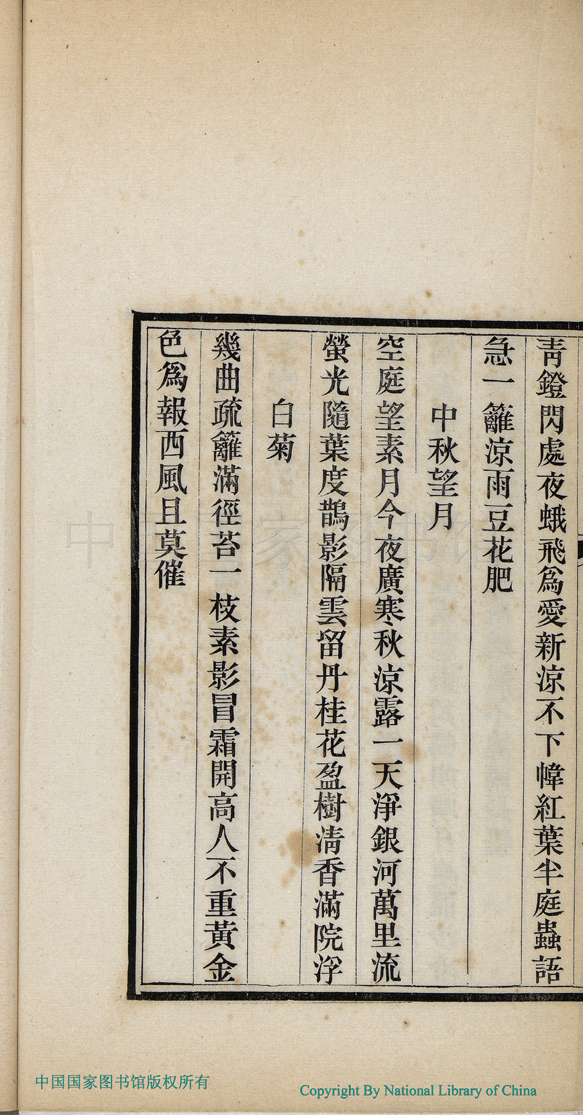 青鐙閃處夜蛾飛爲愛新涼不下幃紅葉半庭蟲語
急一籬涼雨豆花肥
中秋望月
空庭望素月今夜廣寒秋涼露一天淨銀河萬里流
螢光隨葉度鵲影隔雲留丹桂花盈樹清香滿院浮
白菊
幾曲疏籬滿徑苔一枝素影冒霜開高人不重黃金
色爲報西風且莫催
中国国家图书馆版权所有
Copyright By National Library of China